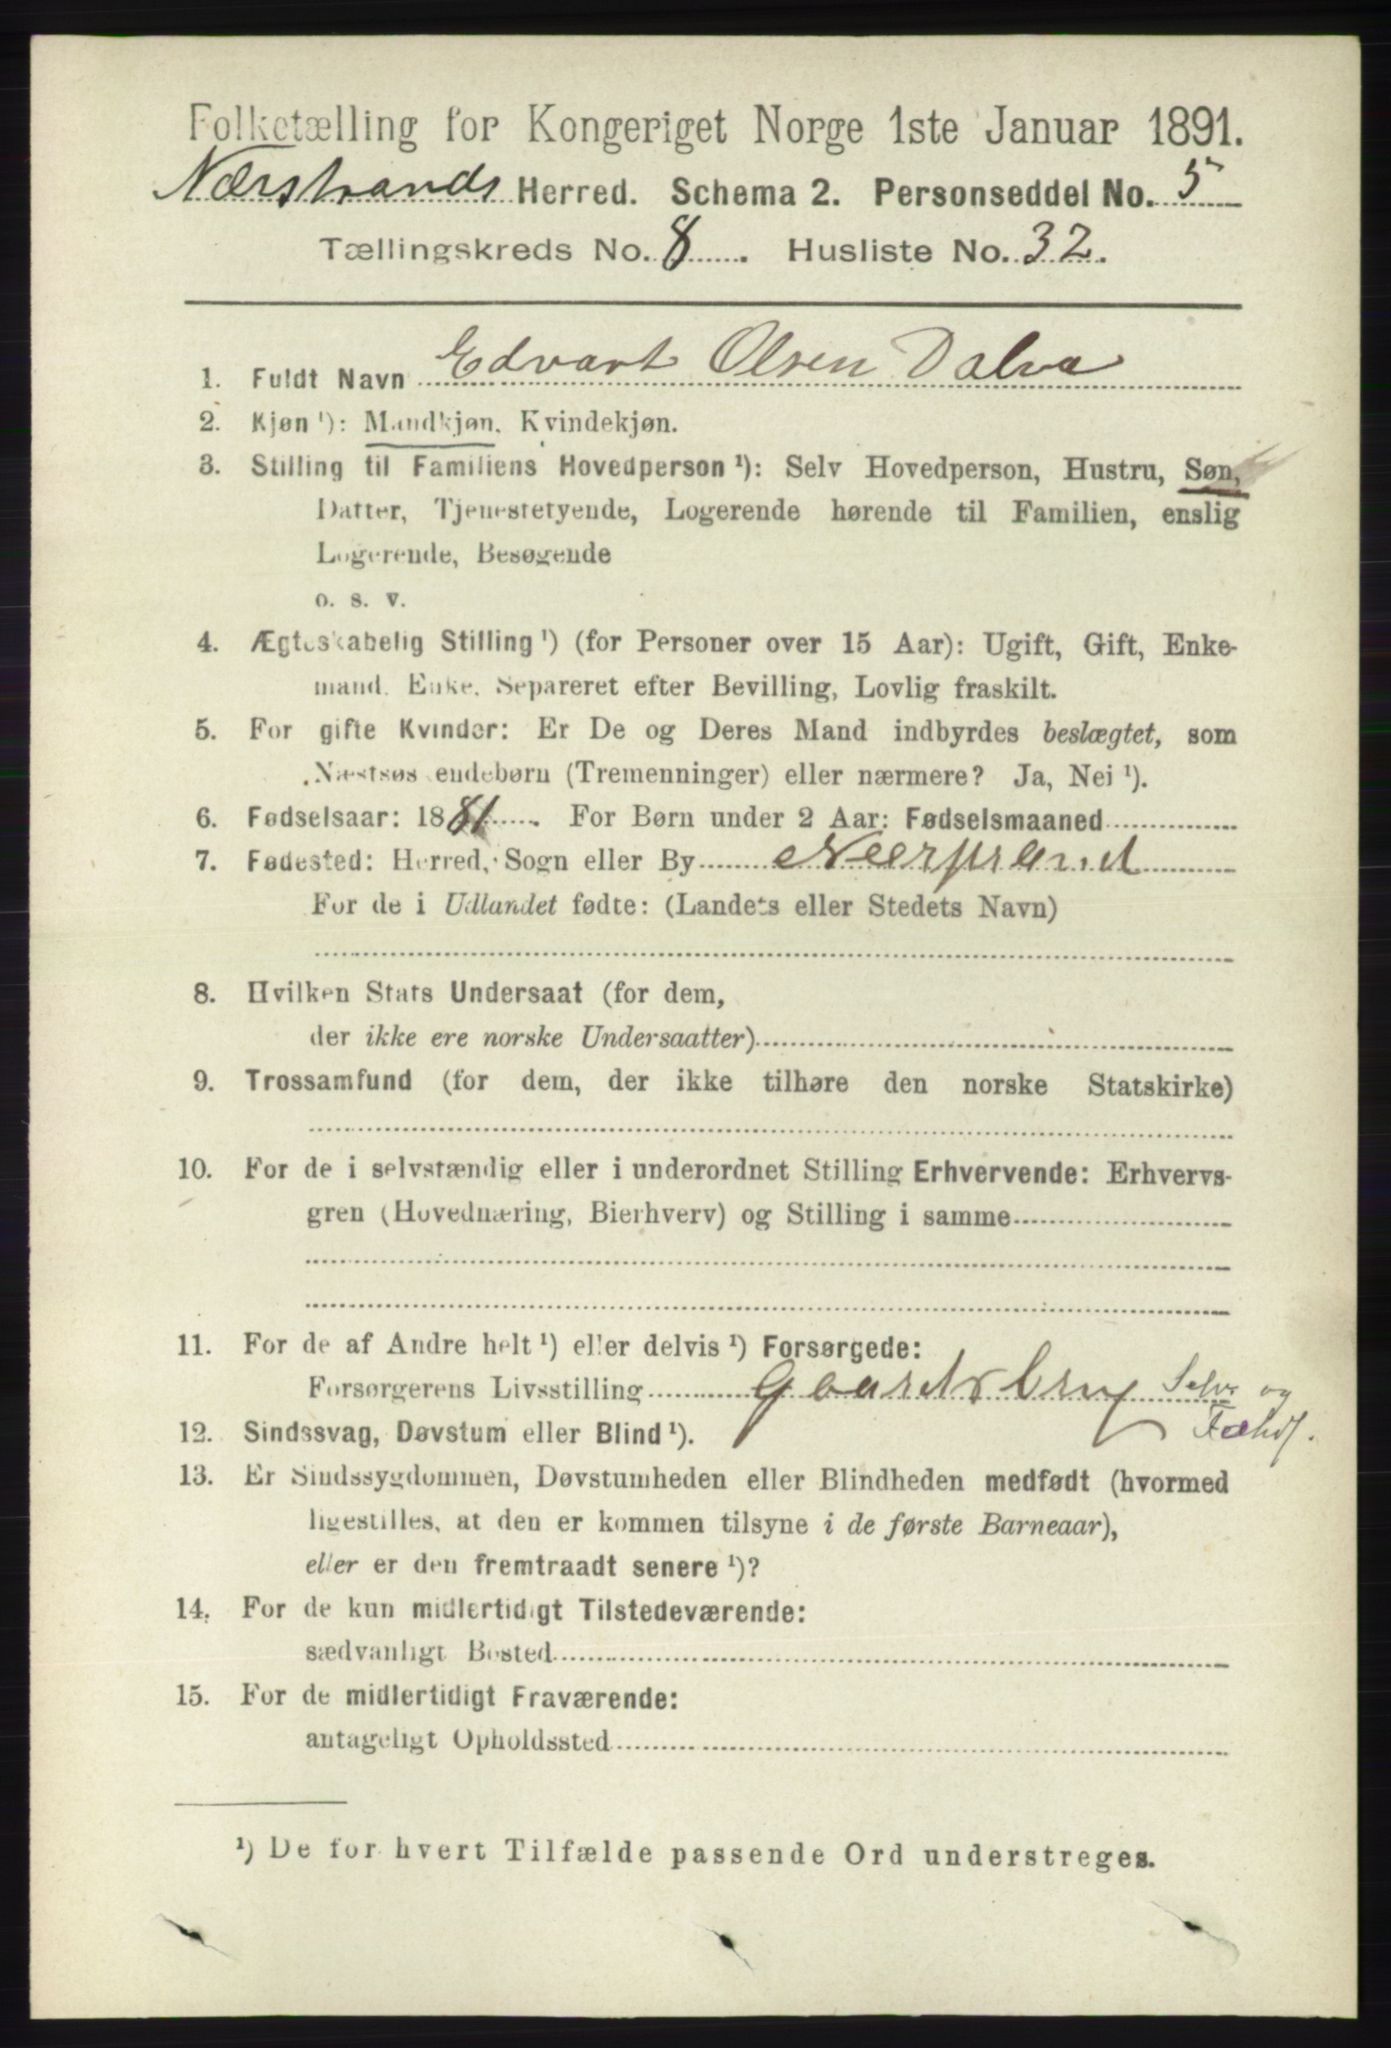 Folketælling for Kongeriget Norge 1ste Januar 1891.
Nærstrands Herred. Schema 2. Personseddel No. 5
Tællingskreds No. 8. Husliste No. 32.
1. Fuldt Navn Edvart Olsen Dalva
2. Kjøn ¹): Mandkjøn. Kvindekjøn.
3. Stilling til Familiens Hovedperson ¹): Selv Hovedperson, Hustru, Søn,
Datter, Tjenestetyende, Logerende hørende til Familien, enslig
Logerende, Besøgende
o. s. v.
4. Ægteskabelig Stilling ¹) (for Personer over 15 Aar): Ugift, Gift, Enke-
mand, Enke, Separeret efter Bevilling, Lovlig fraskilt.
5. For gifte Kvinder: Er De og Deres Mand indbyrdes beslægtet, som
Næstsøskendebørn (Tremenninger) eller nærmere? Ja, Nei ¹).
6. Fødselsaar: 1881. For Børn under 2 Aar: Fødselsmaaned
7. Fødested: Herred, Sogn eller By Neerstrand
For de i Udlandet fødte: (Landets eller Stedets Navn)
8. Hvilken Stats Undersaat (for dem,
der ikke ere norske Undersaatter)
9. Trossamfund (for dem, der ikke tilhøre den norske Statskirke)
10. For de i selvstændig eller i underordnet Stilling Erhvervende: Erhvervs-
gren (Hovednæring, Bierhverv) og Stilling i samme
11. For de af Andre helt ¹) eller delvis ¹) Forsørgede:
Forsørgerens Livsstilling Gaardbrug Selv og
12. Sindssvag, Døvstum eller Blind ¹).
13. Er Sindssygdommen, Døvstumheden eller Blindheden medfødt (hvormed
ligestilles, at den er kommen tilsyne i de første Barneaar),
eller er den fremtraadt senere ¹)?
14. For de kun midlertidigt Tilstedeværende:
sædvanligt Bosted
15. For de midlertidigt Fraværende:
antageligt Opholdssted
¹) De for hvert Tilfælde passende Ord understreges.